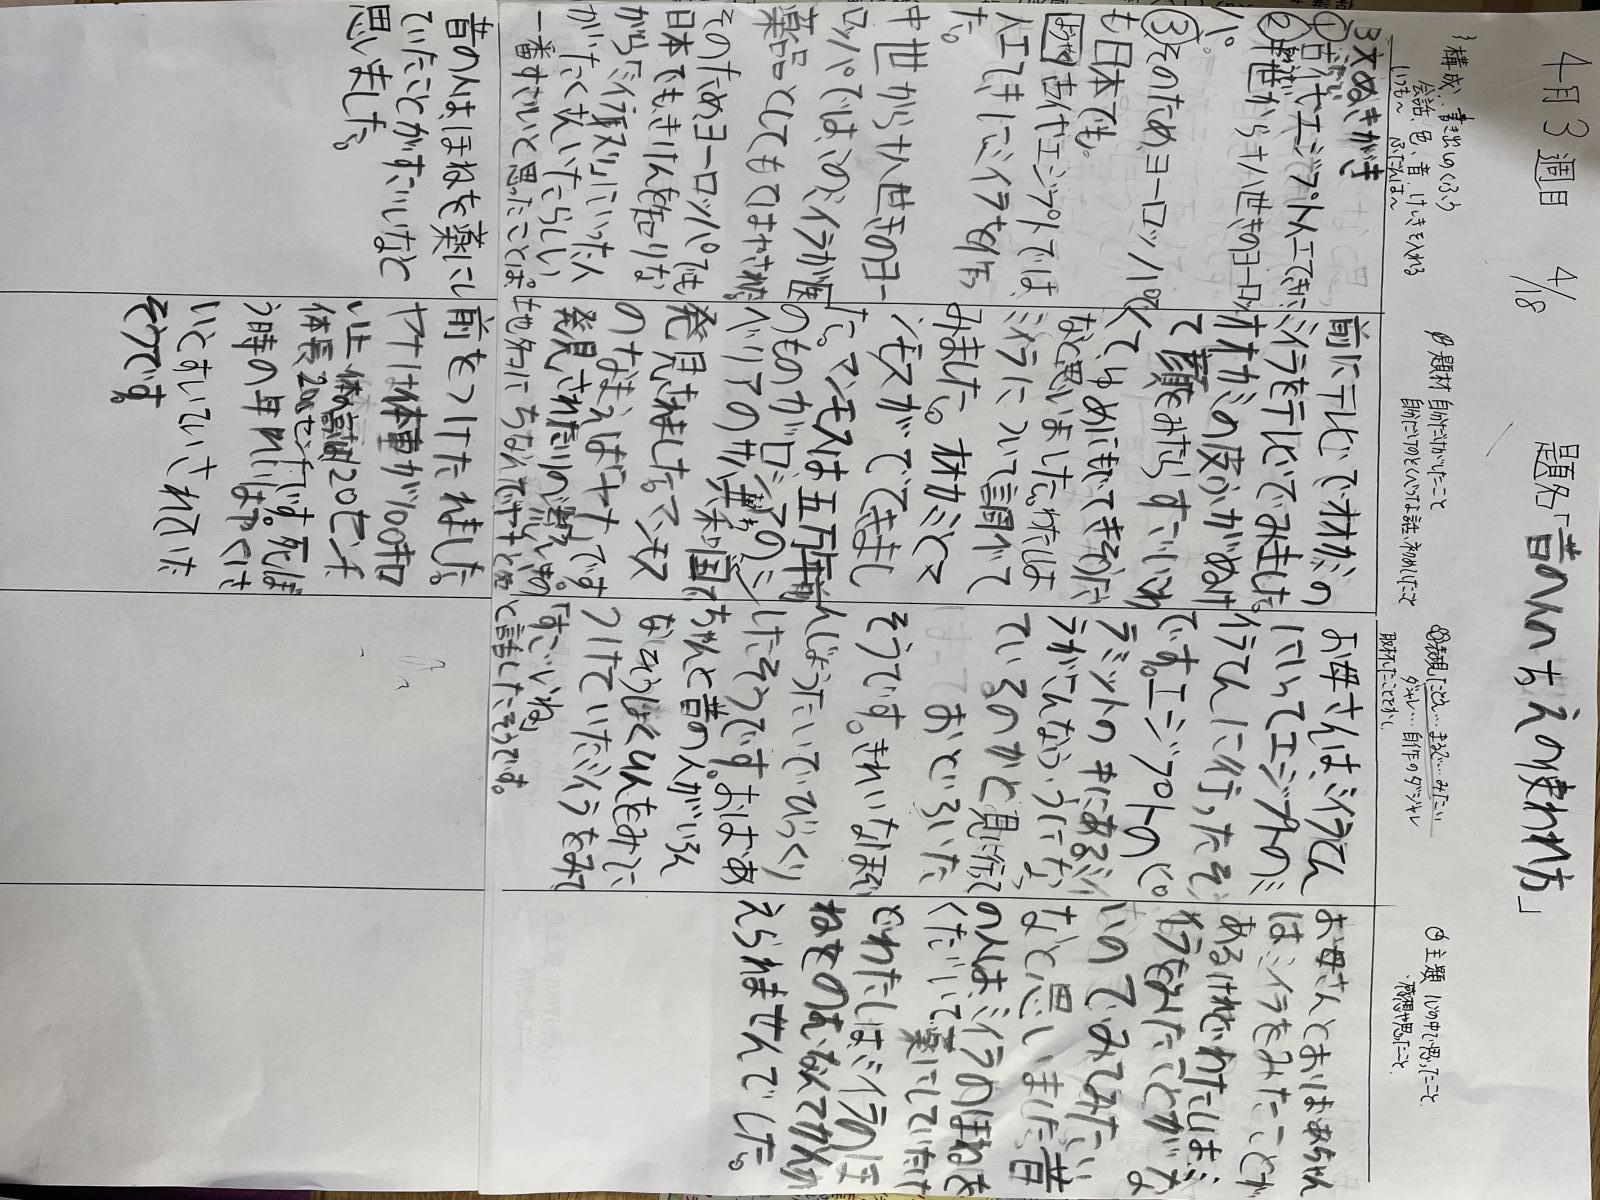 4月3週目 4/18 題名「昔の人ちえの使われ方」
構成…書き出しのくふう
会話、色、音、けしきを入れる
いつも〜ふだんは〜
3文ぬきがき
①古代エジプト人工できに
②中世から十八世きのヨーロッ
パ。
③そのためヨーロッパで
も日本でも。
ようやく古代エジプトでは、
人工てきにミイラを作っ
た。
中世から十八世きのヨー
ロッパでは、このミイラが医
薬品としてもてはやされた。
そのためヨーロッパでも
日本でもきけんをおかしな
がらミイラ取りにいった人
がたくさんいたらしい
一番すごいと思ったことは、
昔の人はほねを薬にし
ていたことがすごいなと
思いました。
②題材 自分だけがしたこと
前にテレビでオオカミの
ミイラをテレビでみました。
オオカミの皮ふがぬけ
て顔をみたらすごいこわ
くてゆめにもでてきそうだ
なと思いました。わたしは
ミイラについて調べて
みました。オオカミとマ
ンモスがでてきまし
た。マンモスは五万年前
のものがロシアのシ
ベリアの共和国で
発見されました。マンモス
のなまえはヤナです
発見された川の
も地名にちなんでヤナと名
前をつけたました。
ヤナは体重が100キロ
い上 体高120センチ
体長200センチです。死ぼ
う時の年れいは
いとすいていされていた
そうです。
③表現 たとえ…まるで…みたい
ダジャレ…自作のダジャレ
取材したことわざ
お母さんは、ミイラてん
にいってエジプトのミ
イラてんに行ったそう
です。エジプトのピ
ラミットの中にあるミイ
ラがこんなふうにな
ているのかと見に行って
おどろいた
そうです。きれいなほぞ
んじょうたいでびっくり
したそうです。おばあ
ちゃんと昔の人がいろん
なそうしょくひんをみに
つけていたミイラをみて
「すごいね」
と話したそうです。
④主題 心の中で思ったこと
感想や思ったこと
お母さんとおばあちゃん
はミイラをみたことが
あるけれどわたしはミ
イラをみたことがな
いのでみてみたい
なと思いました。昔
の人は、ミイラのほねを
くだいて薬にしていたけ
どわたしはミイラのほ
ねをのむなんてかんが
えられませんでした。